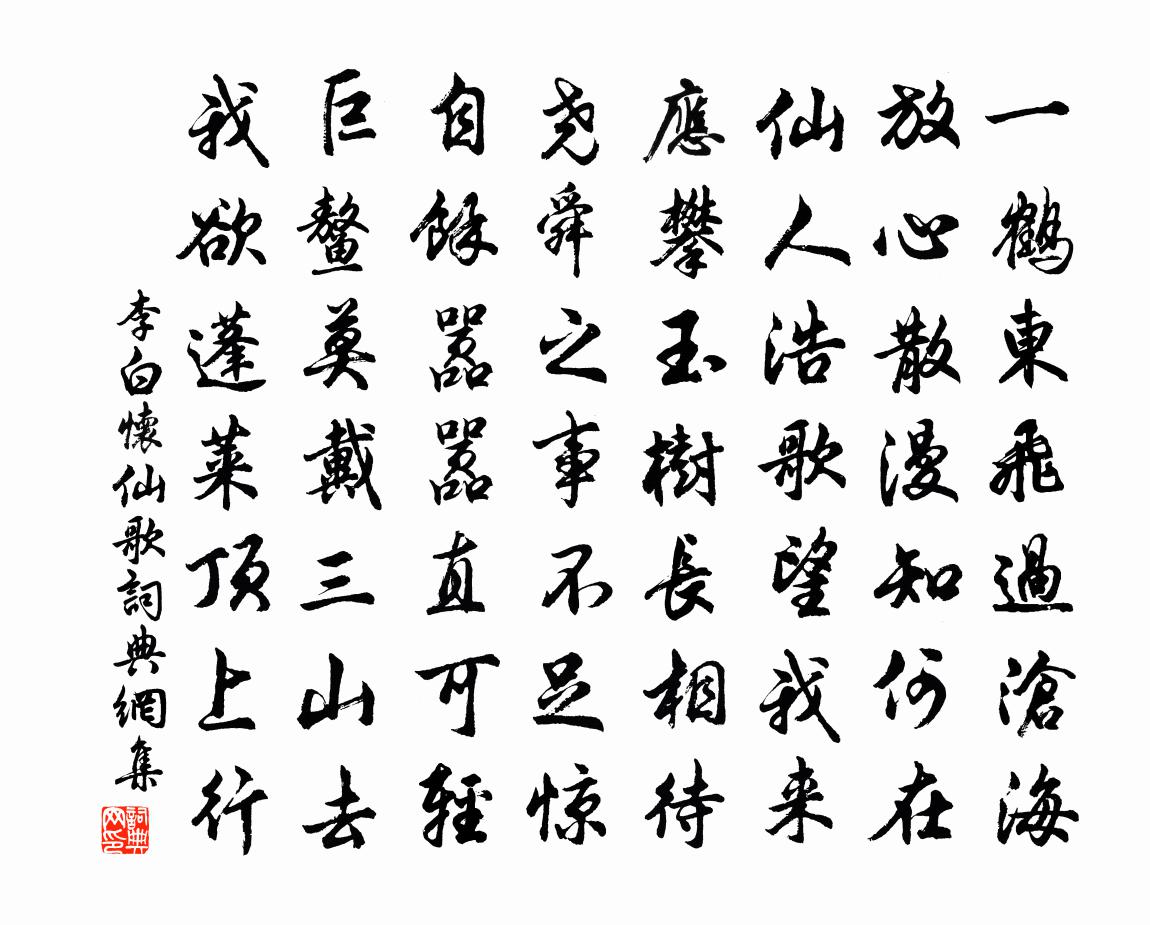 一鶴東飛過滄海
放心散漫知何在
仙人浩歌望我来
應攀玉樹長相待
尧舜之事不足惊
自餘嚣嚣直可輕
巨鳌莫戴三山去
我欲蓬莱顶上行
李白懷仙歌詞典網集
詞典网印